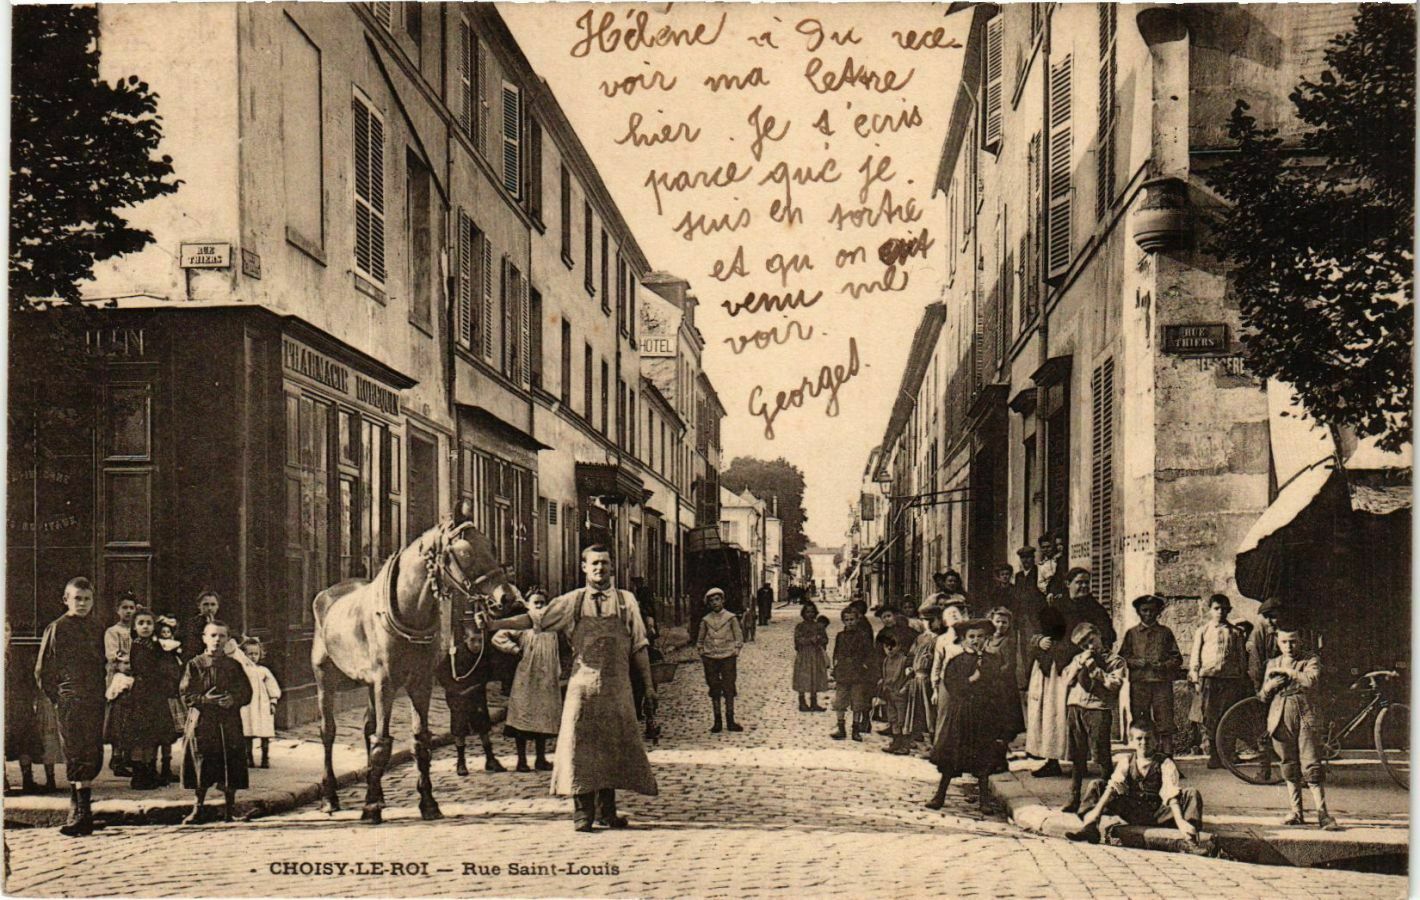 Hélène a Du rece-
voir ma lettre
hier. Je t'écris
parce que je
suis en sortie
et qu on est
venu me
voir.
Georges.
RUE
THIERS
PHARMACIE
HOTEL
RUE
THIERS
DEFENSE D'AFFICHER
CHOISY-LE-ROI — Rue Saint-Louis